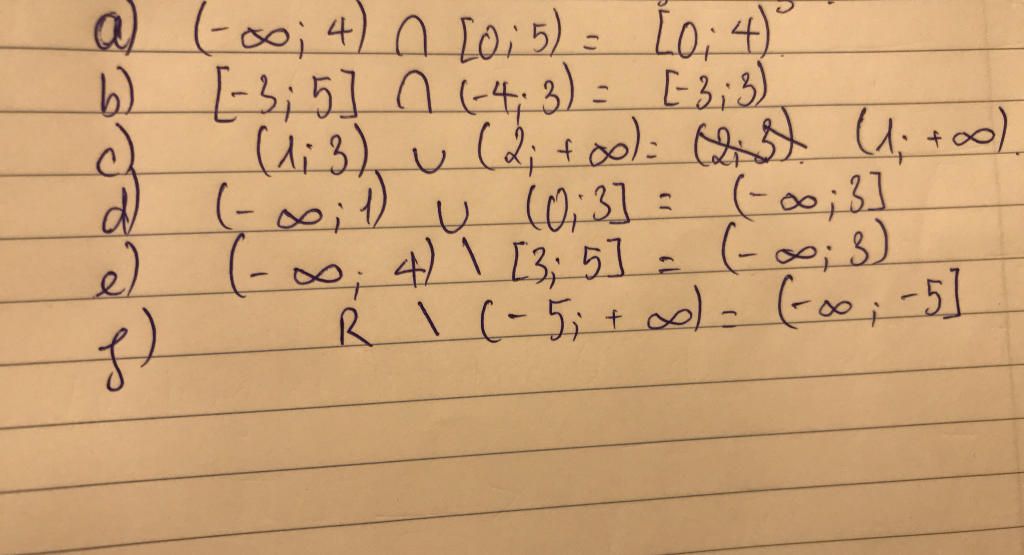 a) (-∞; 4) ∩ [0; 5) = [0; 4)
b) [-3; 5] ∩ (-4; 3) = [-3; 3)
c) (1; 3) ∪ (2; +∞) = (2; 3) (1; +∞).
d) (-∞; 1) ∪ (0; 3] = (-∞; 3]
e) (-∞; 4) \ [3; 5] = (-∞; 3)
f) R \ (-5; +∞) = (-∞; -5]